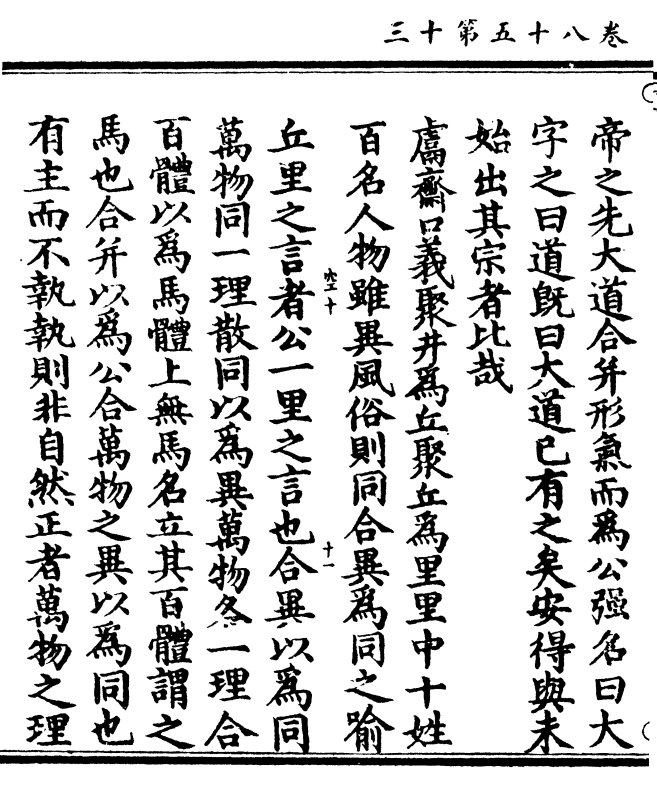 卷八十五第十三
帝之先大道合并形氣而爲公強名曰大
字之曰道旣曰大道已有之矣安得與未
始出其宗者比哉
鬳齋口義聚井爲丘聚丘爲里里中十姓
百名人物雖異風俗則同合異爲同之喻
丘里之言者公一里之言也合異以爲同
空十
十一
萬物同一理散同以爲異萬物各一理合
百體以爲馬體上無馬名立其百體謂之
馬也合并以爲公合萬物之異以爲同也
有主而不執執則非自然正者萬物之理